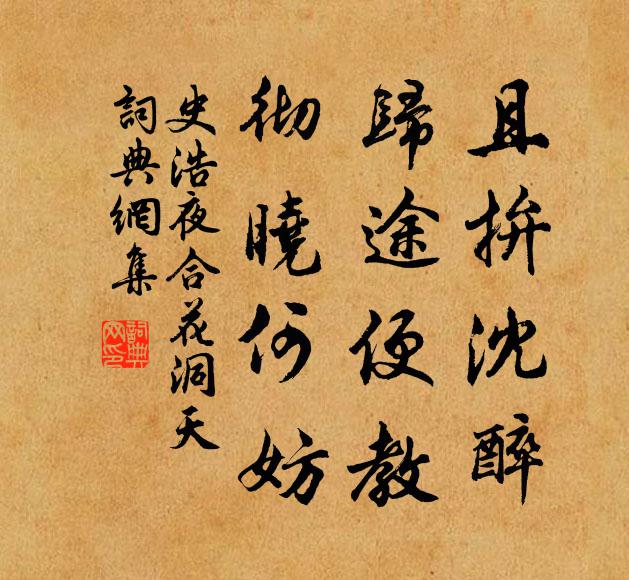 且拚沈醉
歸途便教
彻曉何妨
史浩夜合花洞天
詞典網集
詞典
网印